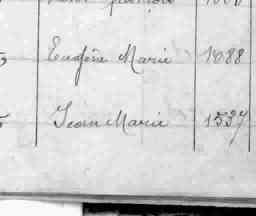 Eugène Marie 1088
Jean Marie 1537